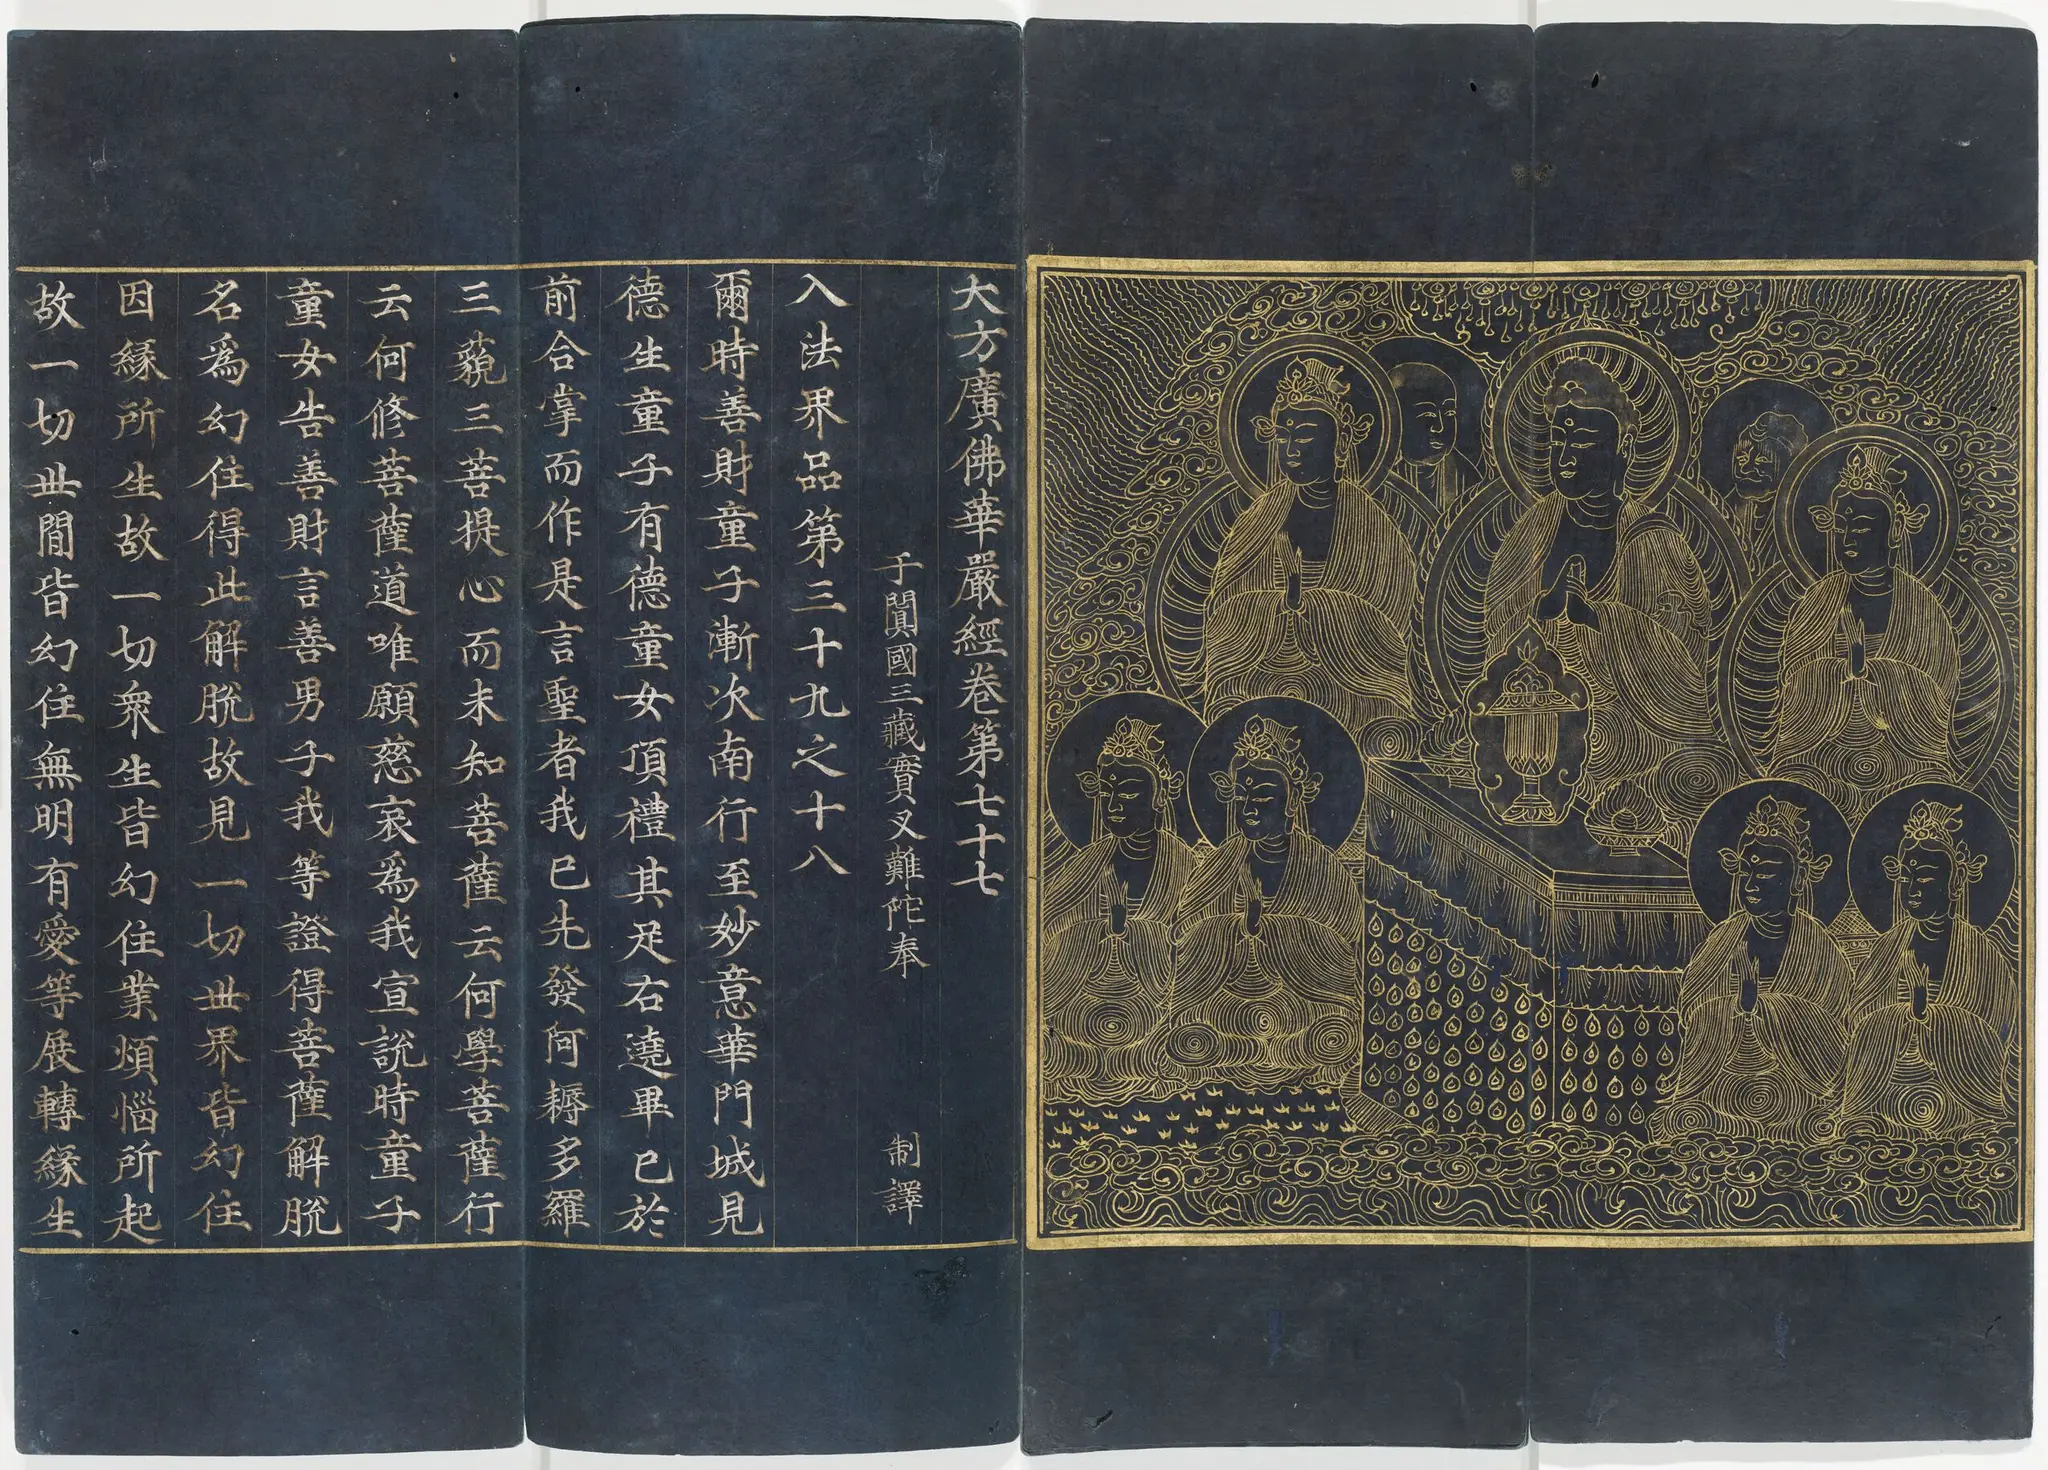 大方廣佛華嚴經卷第七十七
于闐國三藏實叉難陀奉 制譯
入法界品第三十九之十八
爾時善財童子漸次南行至妙意華門城見
德生童子有德童女頂禮其足右遶畢已於
前合掌而作是言聖者我已先發阿耨多羅
三藐三菩提心而未知菩薩云何學菩薩行
云何修菩薩道唯願慈哀爲我宣說時童子
童女告善財言善男子我等證得菩薩解脫
名爲幻住得此解脫故見一切世界皆幻住
因緣所生故一切衆生皆幻住業煩惱所起
故一切世間皆幻住無明有愛等展轉緣生